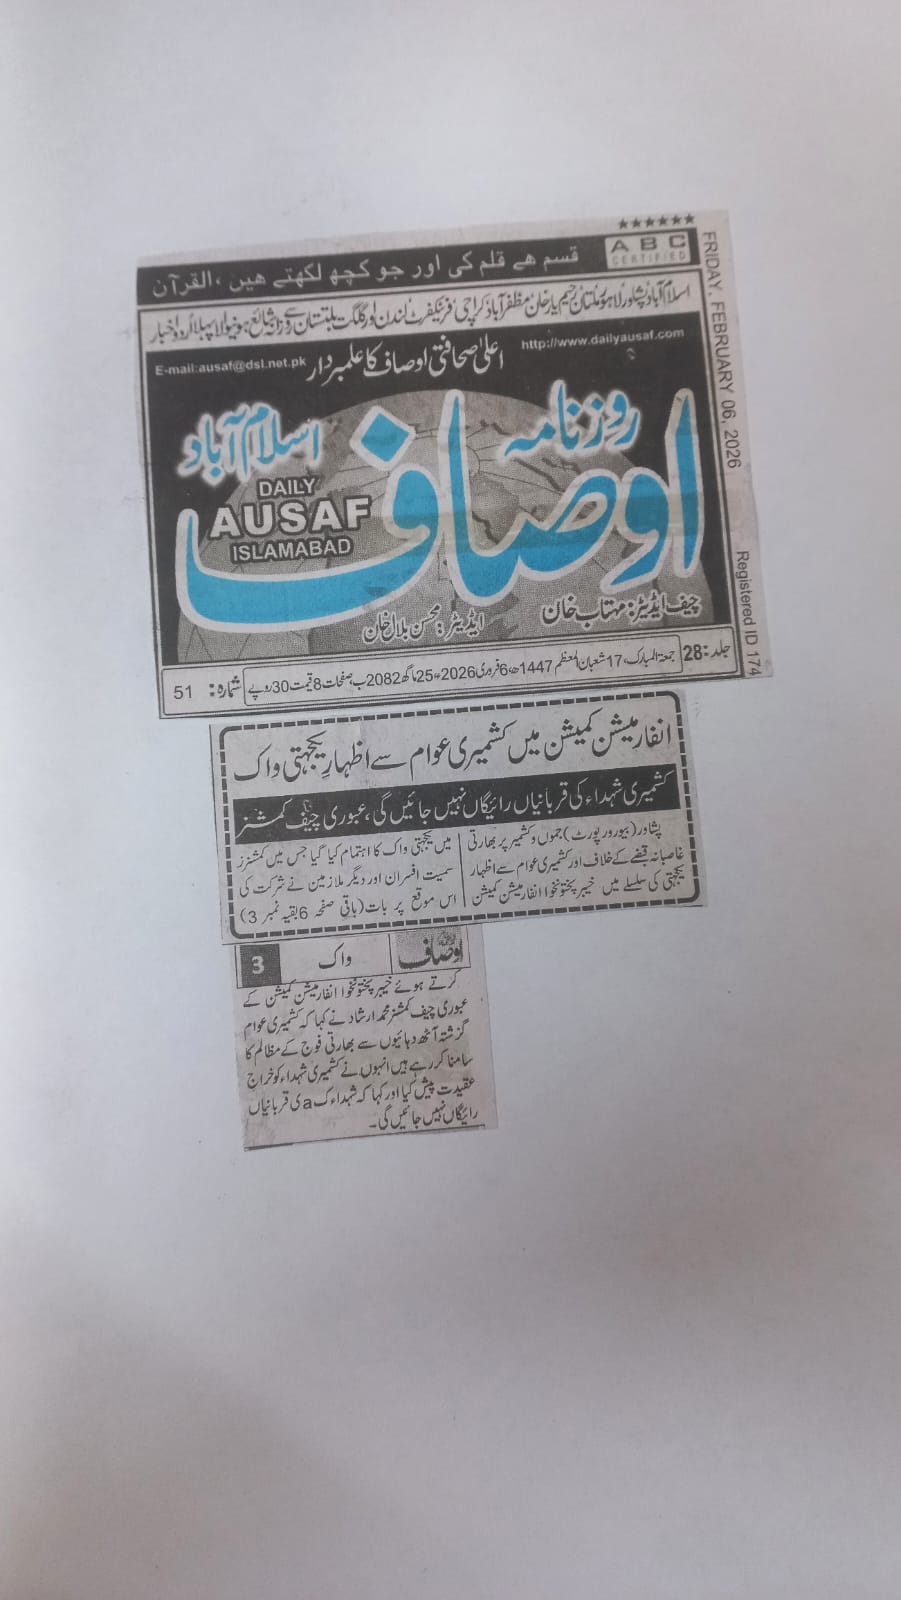 ★★★★★★
ABC
CERTIFIED
قسم ھے قلم کی اور جو کچھ لکھتے ھیں ، القرآن
FRIDAY, FEBRUARY 06, 2026
اسلام آباد، پشاور، لاہور، ملتان، رحیم یار خان، مظفر آباد، کراچی، فرینکفرٹ، لندن اور گلگت بلتستان سے روزانہ شائع ہونیوالا پہلا اردو اخبار
http://www.dailyausaf.com
اعلیٰ صحافتی اوصاف کا علمبردار
E-mail:ausaf@dsl.net.pk
روزنامہ
اوصاف
اسلام آباد
DAILY
AUSAF
ISLAMABAD
چیف ایڈیٹر: مہتاب خان
ایڈیٹر: محسن بلال خان
Registered ID 174
جلد: 28
جمعۃ المبارک، 17 شعبان المعظم 1447ھ، 6 فروری 2026ء، 25 ماگھ 2082 ب، صفحات 8 قیمت 30 روپے
شمارہ: 51
انفارمیشن کمیشن میں کشمیری عوام سے اظہارِ یکجہتی واک
کشمیری شہداء کی قربانیاں رائیگاں نہیں جائیں گی، عبوری چیف کمشنر
پشاور (بیورورپورٹ) جموں و کشمیر پر بھارتی
غاصبانہ قبضے کے خلاف اور کشمیری عوام سے اظہار
یکجہتی کی سلسلے میں خیبر پختونخوا انفارمیشن کمیشن
میں یکجہتی واک کا اہتمام کیا گیا جس میں کمشنرز
سمیت افسران اور دیگر ملازمین نے شرکت کی
اس موقع پر بات (باقی صفحہ 6 بقیہ نمبر 3)
اوصاف
واک
3
کرتے ہوئے خیبر پختونخوا انفارمیشن کمیشن کے
عبوری چیف کمشنر محمد ارشاد نے کہا کہ کشمیری عوام
گزشتہ آٹھ دہائیوں سے بھارتی فوج کے مظالم کا
سامنا کر رہے ہیں انہوں نے کشمیری شہداء کو خراج
عقیدت پیش کیا اور کہا کہ شہداء ک a ی قربانیاں
رائیگاں نہیں جائیں گی۔